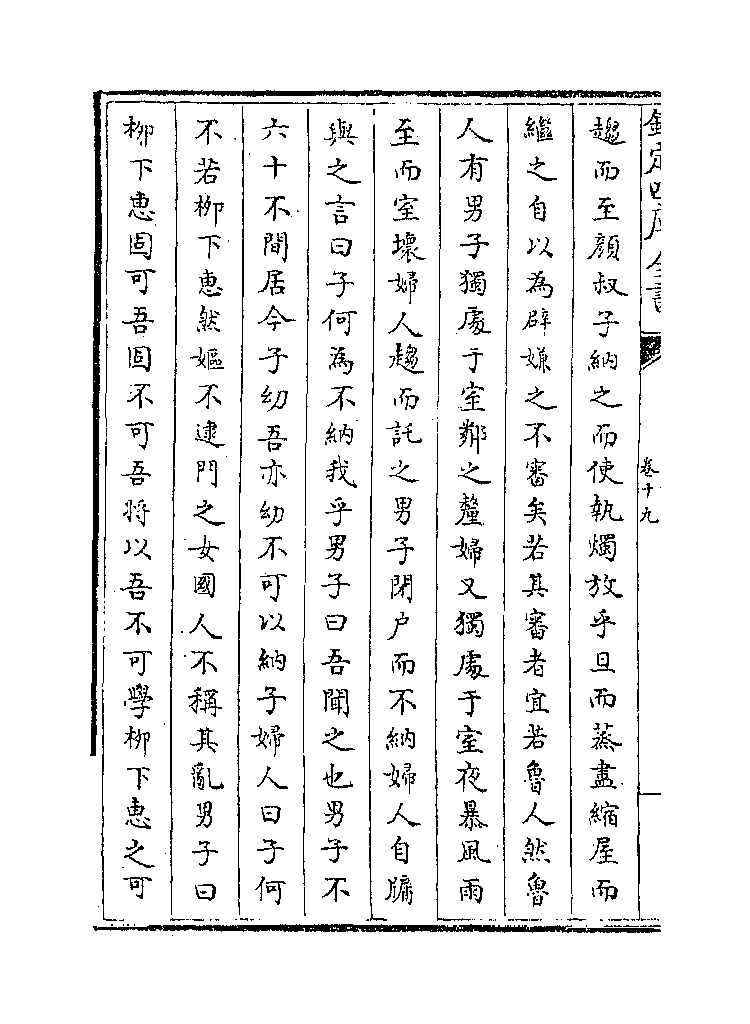 欽定四庫全書
卷十九
趨而至顔叔子納之而使執燭放乎旦而蒸盡縮屋而
繼之自以為辟嫌之不審矣若其審者宜若魯人然魯
人有男子獨處于室鄰之釐婦又獨處于室夜暴風雨
至而室壞婦人趨而託之男子閉户而不納婦人自牖
與之言曰子何為不納我乎男子曰吾聞之也男子不
六十不間居今子幼吾亦幼不可以納子婦人曰子何
不若柳下惠然嫗不逮門之女國人不稱其亂男子曰
柳下惠固可吾固不可吾將以吾不可學柳下惠之可